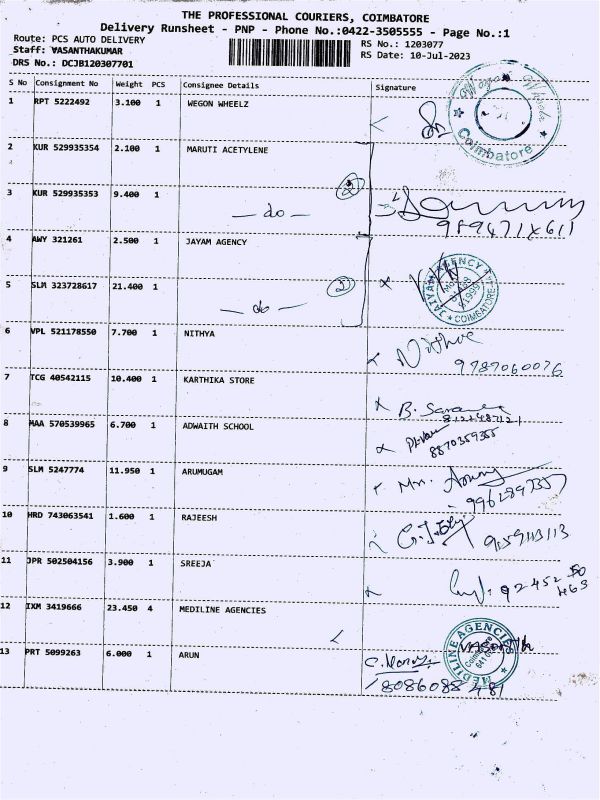 THE PROFESSIONAL COURIERS, COIMBATORE
Delivery Runsheet - PNP - Phone No.:0422-3505555 - Page No.:1
Route: PCS AUTO DELIVERY
Staff: VASANTHAKUMAR
DRS No.: DCJB120307701
RS No.: 1203077
RS Date: 10-Jul-2023
S No Consignment No Weight PCS Consignee Details Signature
1 RPT 5222492 3.100 1 WEGON WHEELZ
Coimbatore
2 KUR 529935354 2.100 1 MARUTI ACETYLENE
3 KUR 529935353 9.400 1 — do — 2
4 AWY 321261 2.500 1 JAYAM AGENCY
5 SLM 323728617 21.400 1 — do — 2
AGENCY COIMBATORE
6 VPL 521178550 7.700 1 NITHYA
Nithya
9787060076
7 TCG 40542115 10.400 1 KARTHIKA STORE
8 MAA 570539965 6.700 1 ADWAITH SCHOOL
8870359355
9 SLM 5247774 11.950 1 ARUMUGAM
10 HRD 743063541 1.600 1 RAJEESH
11 JPR 502504156 3.900 1 SREEJA
12 IXM 3419666 23.450 4 MEDILINE AGENCIES
MEDILINE AGENCIES
13 PRT 5099263 6.000 1 ARUN
8086088481